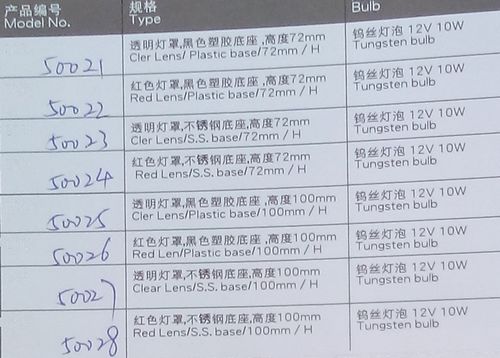 产品编号 规格 Bulb
Model No. Type
透明灯罩,黑色塑胶底座,高度72mm 钨丝灯泡 12V 10W
50021 Cler Lens/ Plastic base/72mm / H Tungsten bulb
红色灯罩,黑色塑胶底座,高度72mm 钨丝灯泡 12V 10W
50022 Red Lens/Plastic base/72mm / H Tungsten bulb
透明灯罩,不锈钢底座,高度72mm 钨丝灯泡 12V 10W
50023 Cler Lens/S.S. base/72mm / H Tungsten bulb
红色灯罩,不锈钢底座,高度72mm 钨丝灯泡 12V 10W
50024 Red Lens/S.S. base/72mm / H Tungsten bulb
透明灯罩,黑色塑胶底座,高度100mm 钨丝灯泡 12V 10W
50025 Cler Lens/Plastic base/100mm / H Tungsten bulb
红色灯罩,黑色塑胶底座,高度100mm 钨丝灯泡 12V 10W
50026 Red Len/Plastic base/100mm / H Tungsten bulb
透明灯罩,不锈钢底座,高度100mm 钨丝灯泡 12V 10W
50027 Clear Lens/S.S. base/100mm / H Tungsten bulb
红色灯罩,不锈钢底座,高度100mm 钨丝灯泡 12V 10W
50028 Red Lens/S.S. base/100mm / H Tungsten bulb